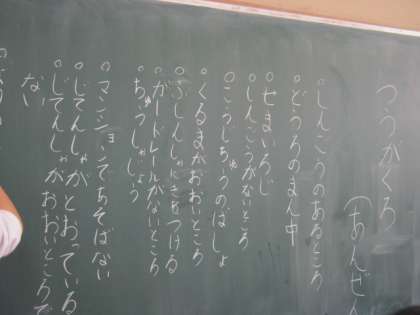 つうがくろ
(あんぜん
○しんごうのあるところ
○どうろのまん中
○せまいろじ
○しんごうがないところ
○こうじちゅうのばしょ
○くるまがおおいところ
○ふしんしゃにきをつける
○ガードレールがないところ
○ちゅうしゃじょう
○マンションであそばない
○じてんしゃがとおっている
○じてんしゃがおおいところで
ない